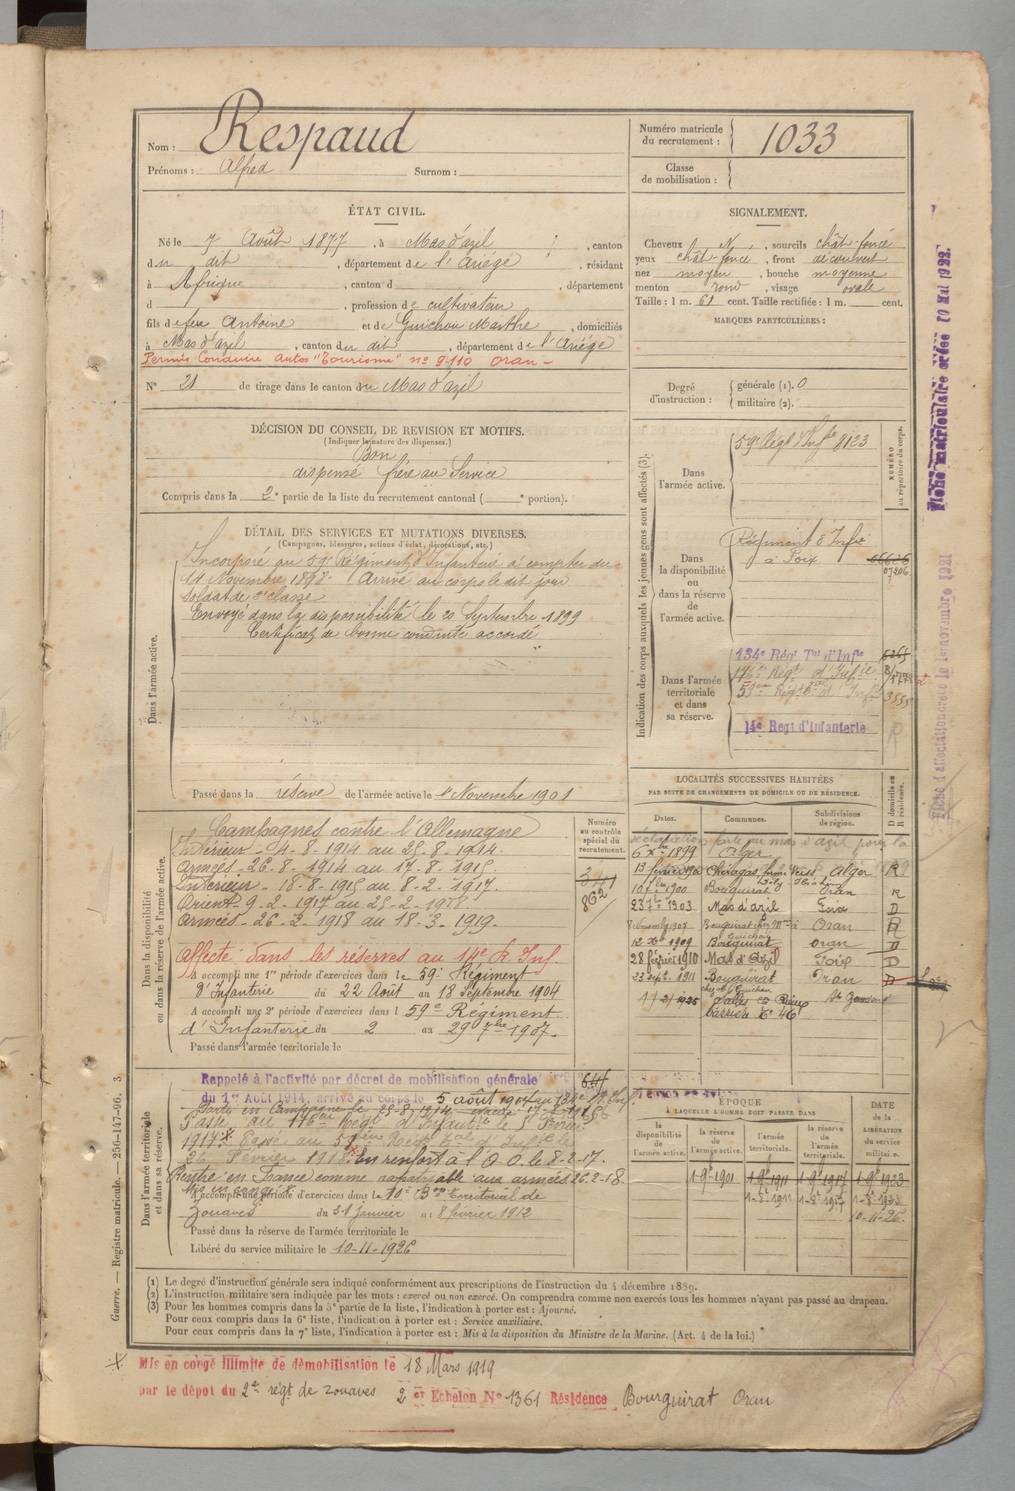 Nom : Respaud
Prénoms : Alfred Surnom :
Numéro matricule du recrutement : 1033
Classe de mobilisation :
ÉTAT CIVIL.
Né le 7 Août 1877, à Mas d'azil, canton
du dit, département de l'Ariège, résidant
à Afrique, canton d , département
d , profession de cultivateur
fils de feu Antoine et de Guichou Marthe, domiciliés
à Mas d'azil, canton du dit, département de l'Ariège
Permis Conduire Autos "Tourisme" n° 9.110 Oran -
N° 21 de tirage dans le canton du Mas d'azil
SIGNALEMENT.
Cheveux N, sourcils chât-foncé
yeux chât-foncé, front découvert
nez moyen, bouche moyenne
menton rond, visage ovale
Taille : 1 m. 61 cent. Taille rectifiée : 1 m. cent.
MARQUES PARTICULIÈRES :
Degré d'instruction : générale (1). 0
militaire (2).
DÉCISION DU CONSEIL DE REVISION ET MOTIFS.
(Indiquer la nature des dispenses.)
Bon
dispensé frère au Service
Compris dans la 2e partie de la liste du recrutement cantonal ( e portion).
DÉTAIL DES SERVICES ET MUTATIONS DIVERSES.
(Campagnes, blessures, actions d'éclat, décorations, etc.)
Dans l'armée active.
Incorporé au 59e Régiment d'Infanterie à compter du
14 Novembre 1898. Arrivé au corps le dit jour
Soldat de 2e classe
Envoyé dans la disponibilité le 20 Septembre 1899
Certificat de bonne conduite accordé
Passé dans la réserve de l'armée active le 1er Novembre 1901
Indication des corps auxquels les jeunes gens sont affectés (3).
NUMÉRO au répertoire du corps.
Dans l'armée active.
59e Régt d'Infie 8123
Dans la disponibilité ou dans la réserve de l'armée active.
Régiment d'Infie
à Foix
07206
Dans l'armée territoriale et dans sa réserve.
134e Régt Tal d'Infie
176e Régt d'Infie
51e Régt Tal d'Infie 3555
14e Régt d'Infanterie
Fiche matriculaire créée 10 Mai 1922.
Fiche d'affectation créée le 1er novembre 1921
Dans la disponibilité ou dans la réserve de l'armée active.
Numéro au contrôle spécial du recrutement.
341
802
Campagnes contre l'Allemagne
Intérieur - 4-8-1914 au 25-8-1914.
Armées - 26-8-1914 au 17-8-1915.
Intérieur - 18-8-1915 au 8-2-1917.
Orient - 9-2-1917 au 25-2-1918
Armées - 26-2-1918 au 18-3-1919.
Affecté dans les réserves au 14e R. Inf
A accompli une 1re période d'exercices dans le 59e Régiment
d'Infanterie du 22 Août au 18 Septembre 1904
A accompli une 2e période d'exercices dans l 59e Régiment
d'Infanterie du 2 au 29 7bre 1907
Passé dans l'armée territoriale le
LOCALITÉS SUCCESSIVES HABITÉES
PAR SUITE DE CHANGEMENTS DE DOMICILE OU DE RÉSIDENCE.
Dates. Communes. Subdivisions de région. D domicile ou R résidence.
6 Xbre 1899 Alger
13 février 1900 Chéragas Alger R
1900 Bourguirat Oran R
23 7bre 1903 Mas d'azil Foix D
8 Novembre 1907 Bourguirat Oran R
12 Xbre 1909 Bourguirat Oran D
28 février 1910 Mas d'Azil Foix D
23 sept. 1911 Bourguirat Oran D
1925
Dans l'armée territoriale et dans sa réserve.
Rappelé à l'activité par décret de mobilisation générale
du 1er Août 1914, arrivé au corps le 5 août 1914 au 134e
Parti en campagne le 25-8-1914
Passé au 176e Régt d'Infantie le 1er Février
1917. Passé au 51e Régt Tal d'Infie le
26 Février 1918. En renfort à l'A.O. le 8-2-17.
Rentré en France comme aux armées 26-2-18
A accompli une période d'exercices dans le 10e Bon territorial de
Zouaves du 31 Janvier au 8 février 1912
Passé dans la réserve de l'armée territoriale le
Libéré du service militaire le 10-11-1926
ÉPOQUE
À LAQUELLE L'HOMME DOIT PASSER DANS
la disponibilité de l'armée active. la réserve de l'armée active. l'armée territoriale. la réserve de l'armée territoriale. DATE de la LIBÉRATION du service militaire.
1-9bre 1901 1-9bre 1911 1-9bre 1917 1-9bre 1923
1-8-1911 1-8-1917 1-8-1923
10-11-26.
(1) Le degré d'instruction générale sera indiqué conformément aux prescriptions de l'instruction du 4 décembre 1889.
(2) L'instruction militaire sera indiquée par les mots : exercé ou non exercé. On comprendra comme non exercés tous les hommes n'ayant pas passé au drapeau.
(3) Pour les hommes compris dans la 5e partie de la liste, l'indication à porter est : Ajourné.
Pour ceux compris dans la 6e liste, l'indication à porter est : Service auxiliaire.
Pour ceux compris dans la 7e liste, l'indication à porter est : Mis à la disposition du Ministre de la Marine. (Art. 4 de la loi.)
Guerre. — Registre matricule. — 256-147-96. 3
Mis en congé illimité de démobilisation le 18 Mars 1919
par le dépôt du 2e régt de zouaves 2e Echelon N° 1361 Résidence Bourguirat Oran